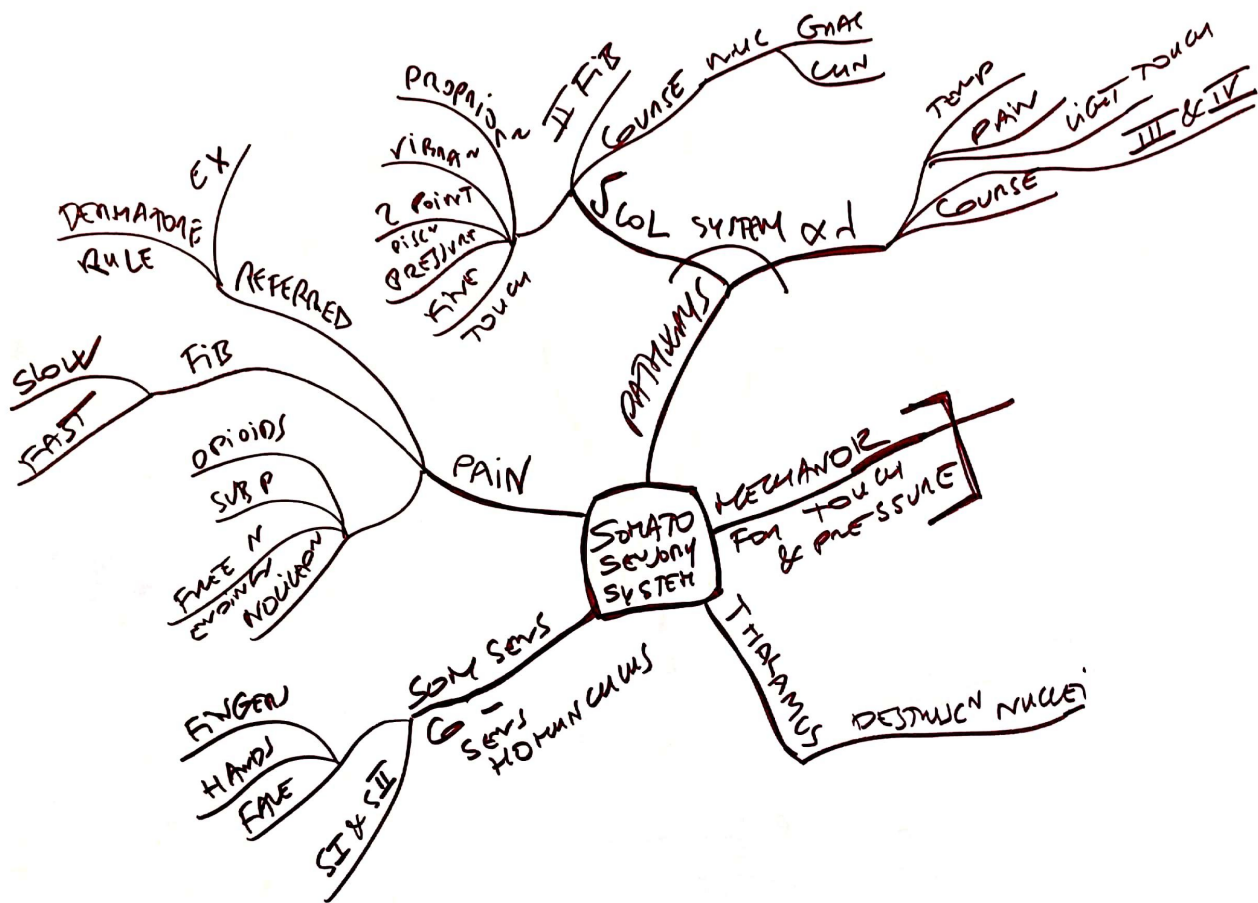 SOMATO
SENSORY
SYSTEM
PATHWAYS
COL SYSTEM
II FIB
COURSE
NUC
GRAC
CUN
PROPRIO
VIBRAN
2 POINT
DISCN
PRESSURE
FINE
TOUCH
TEMP
PAIN
LIGHT TOUCH
III & IV
COURSE
MECHANOR
FOR TOUCH
& PRESSURE
THALAMUS
DESTRUCN NUCLEI
SOM SENS
C -
SENS
HOMUNCULUS
FINGER
HANDS
FACE
SI & SII
PAIN
REFERRED
EX
DERMATOME
RULE
FIB
SLOW
FAST
OPIOIDS
SUB P
FREE N
ENDINGS